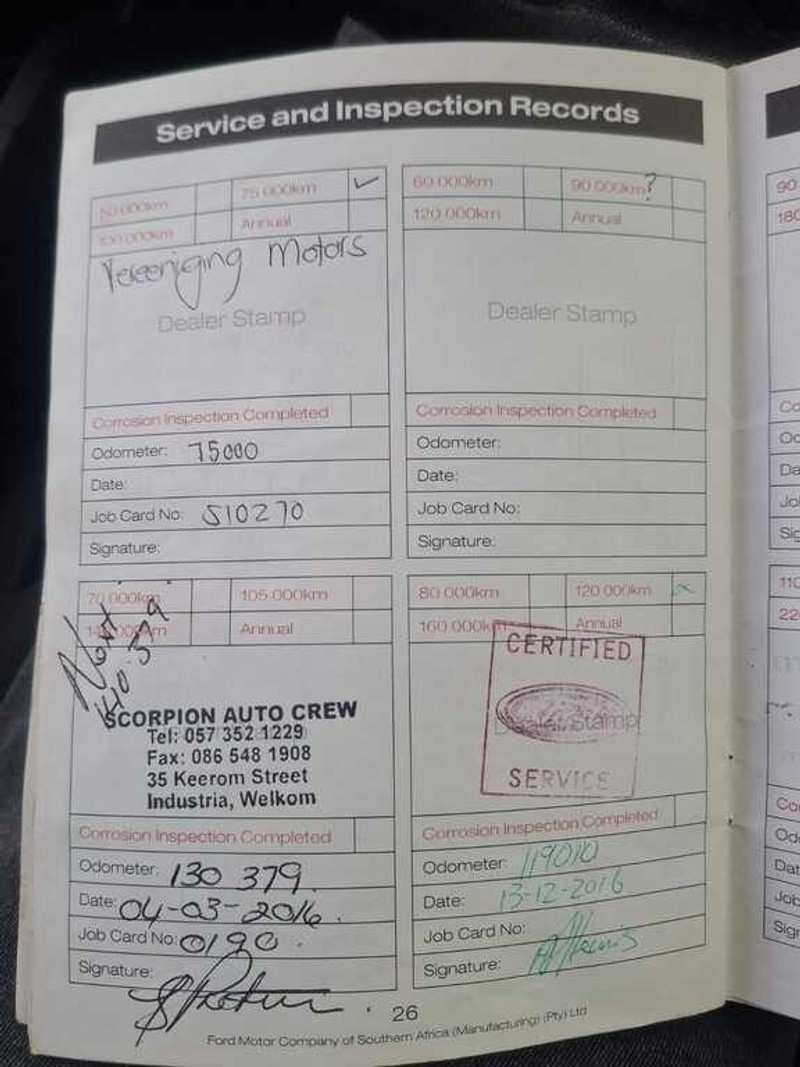 Service and Inspection Records
50 000km
75 000km ✓
100 000km
Annual
Vereeniging Motors
Dealer Stamp
Corrosion Inspection Completed
Odometer: 75000
Date:
Job Card No: S10270
Signature:
60 000km
90 000km ?
120 000km
Annual
Dealer Stamp
Corrosion Inspection Completed
Odometer:
Date:
Job Card No:
Signature:
70 000km
105 000km
140 000km
Annual
Next
140.379
SCORPION AUTO CREW
Tel: 057 352 1229
Fax: 086 548 1908
35 Keerom Street
Industria, Welkom
Corrosion Inspection Completed
Odometer: 130 379.
Date: 04-03-2016.
Job Card No: 0190.
Signature:
80 000km
120 000km
160 000km
Annual
CERTIFIED
Dealer Stamp
SERVICE
Corrosion Inspection Completed
Odometer: 119010
Date: 13-12-2016
Job Card No:
Signature:
26
Ford Motor Company of Southern Africa (Manufacturing) (Pty) Ltd
90
180
110
22